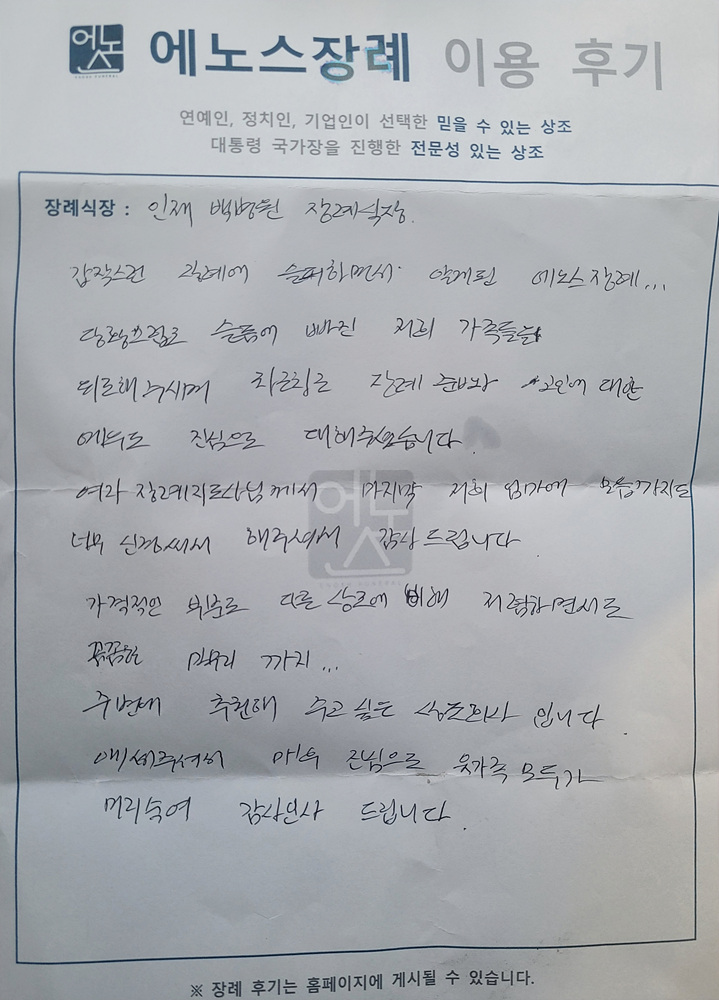 에노스 에노스장례 이용 후기
연예인, 정치인, 기업인이 선택한 믿을 수 있는 상조
대통령 국가장을 진행한 전문성 있는 상조
장례식장 : 인재 백병원 장례식장.
갑작스런 장례에 슬퍼하면서 알게된 에노스장례...
당황스럽고 슬픔에 빠진 저희 가족들을
위로해주시며 차근차근 장례 준비와 고인에 대한
예우도 진심으로 대해주셨습니다.
여자 장례지도사님께서 마지막 저희 엄마에 모습까지도
너무 신경써서 해주셔서 감사드립니다.
가격적인 부분도 다른 상조에 비해 저렴하면서도
꼼꼼한 마무리 까지...
주변에 추천해 주고 싶은 상조회사 입니다.
애써주셔서 진심으로 가족 모두가
머리숙여 감사인사 드립니다.
※ 장례 후기는 홈페이지에 게시될 수 있습니다.